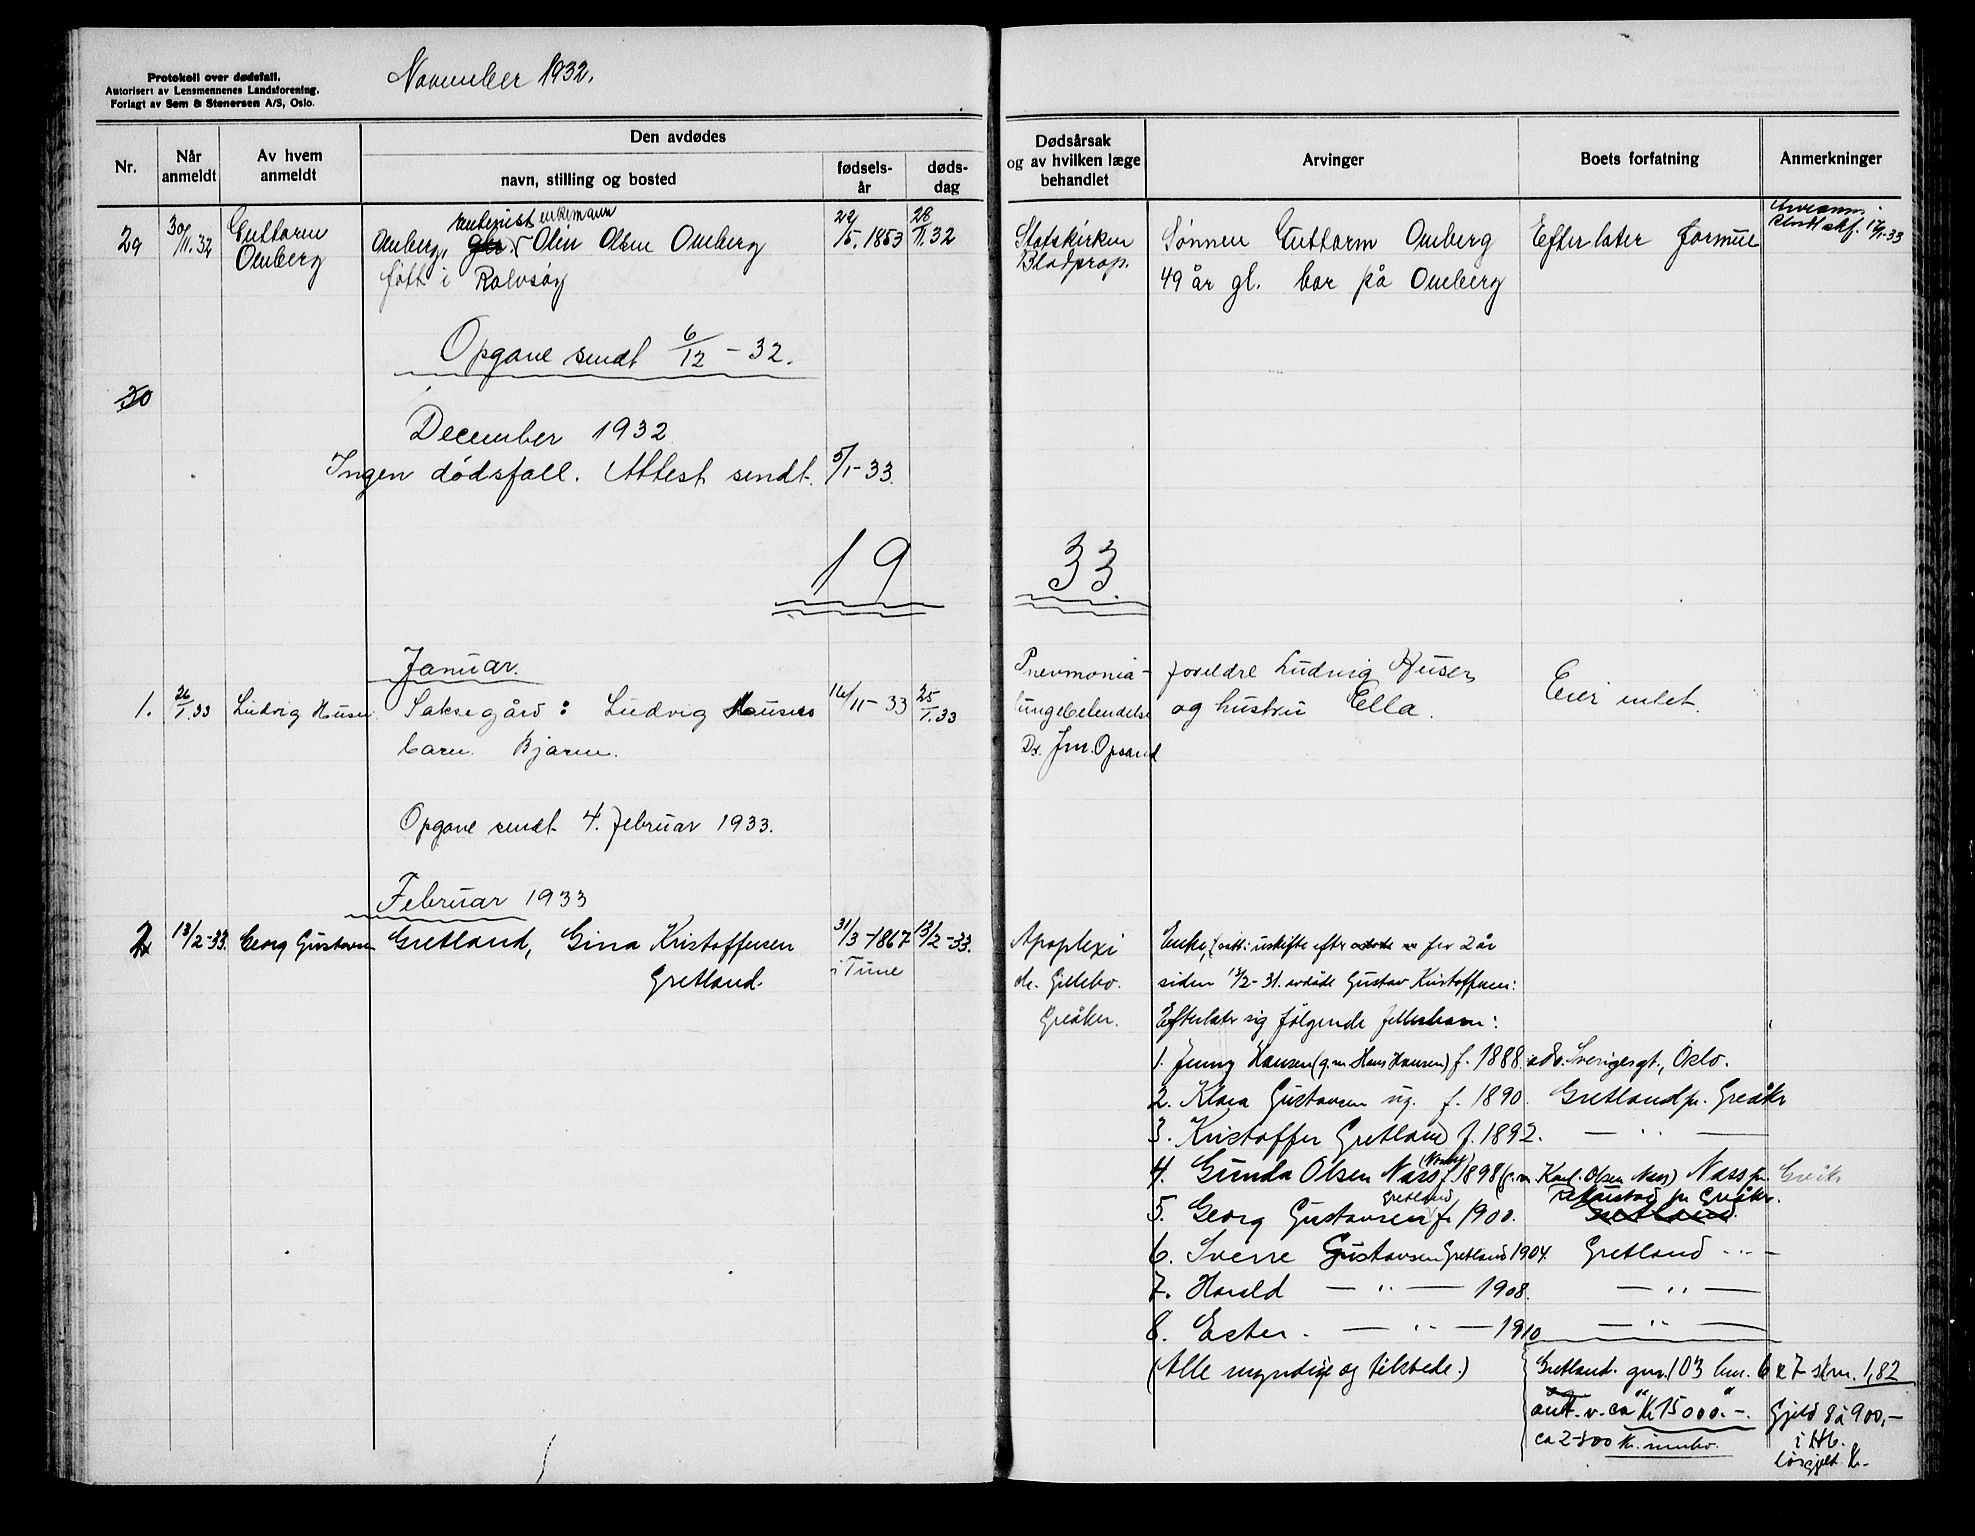 Protokoll over dødsfall.
Autorisert av Lensmennenes Landsforening.
Forlagt av Sem & Stenersen A/S, Oslo.
November 1932.
Nr.
Når anmeldt
Av hvem anmeldt
Den avdødes
navn, stilling og bosted
fødselsår
dødsdag
Dødsårsak og av hvilken læge behandlet
Arvinger
Boets forfatning
Anmerkninger
29 30/11.32 Guttorm Omberg
rentenist enkemann
Omberg, Olin Olsen Omberg
født i Rolvsøy
22/5.1853 28/11.32
Statskirken
Blodprop.
Sønnen Guttorm Omberg
49 år gl. bor på Omberg
Efterlater formue
17/1-33
Opgave sendt 6/12-32.
30
December 1932
Ingen dødsfall. Attest sendt. 5/1-33.
19 33.
Januar.
1. 26/1.33 Ludvig Husen
Saksegård: Ludvig Husens
barn Bjarne.
16/11-33 25/1.33
Pnevmonia-
lungebetendelse
Dr. Jm. Opsand
foreldre Ludvig Husen
og hustru Ella.
Eier intet.
Opgave sendt 4. februar 1933.
Februar 1933
2 13/2-33. Georg Gustavsen
Gretland, Gina Kristoffersen
Gretland.
31/3-1867 13/2-33.
i Tune
Apoplexi
dr. Gillebo.
Greåker.
Enke, sitt. i uskifte efter for 2 år
siden 13/2-31. avdøde Gustav Kristoffersen:
Efterlater sig følgende fellesbarn:
1. Jenny Hansen (g.m. Hans Hansen) f. 1888. adr. Sverigesgt., Oslo.
2. Klara Gustavsen ug. f. 1890. Gretland pr. Greåker
3. Kristoffer Gretland f. 1892. — " —
4. Gunda Olsen Næss f. 1898 (g.m. Karl Olsen Næss) Næss pr. Greåk.
5. Georg Gustavsen Gretland f. 1900. pr. Greåker.
Gretland
6. Sverre Gustavsen Gretland 1904. Gretland — " —
7. Harald — " — 1908. — " —
8. Ester. — " — 1910 — " —
(Alle myndige og tilstede.)
Gretland. gnr. 103 bnr. 6 & 7 skm. 1,82
ant. v. ca Kr 15000.-.
Gjeld 8 à 900,-
i Hb.
ca 2-300 Kr. innbo.
løsgjeld Kr.-